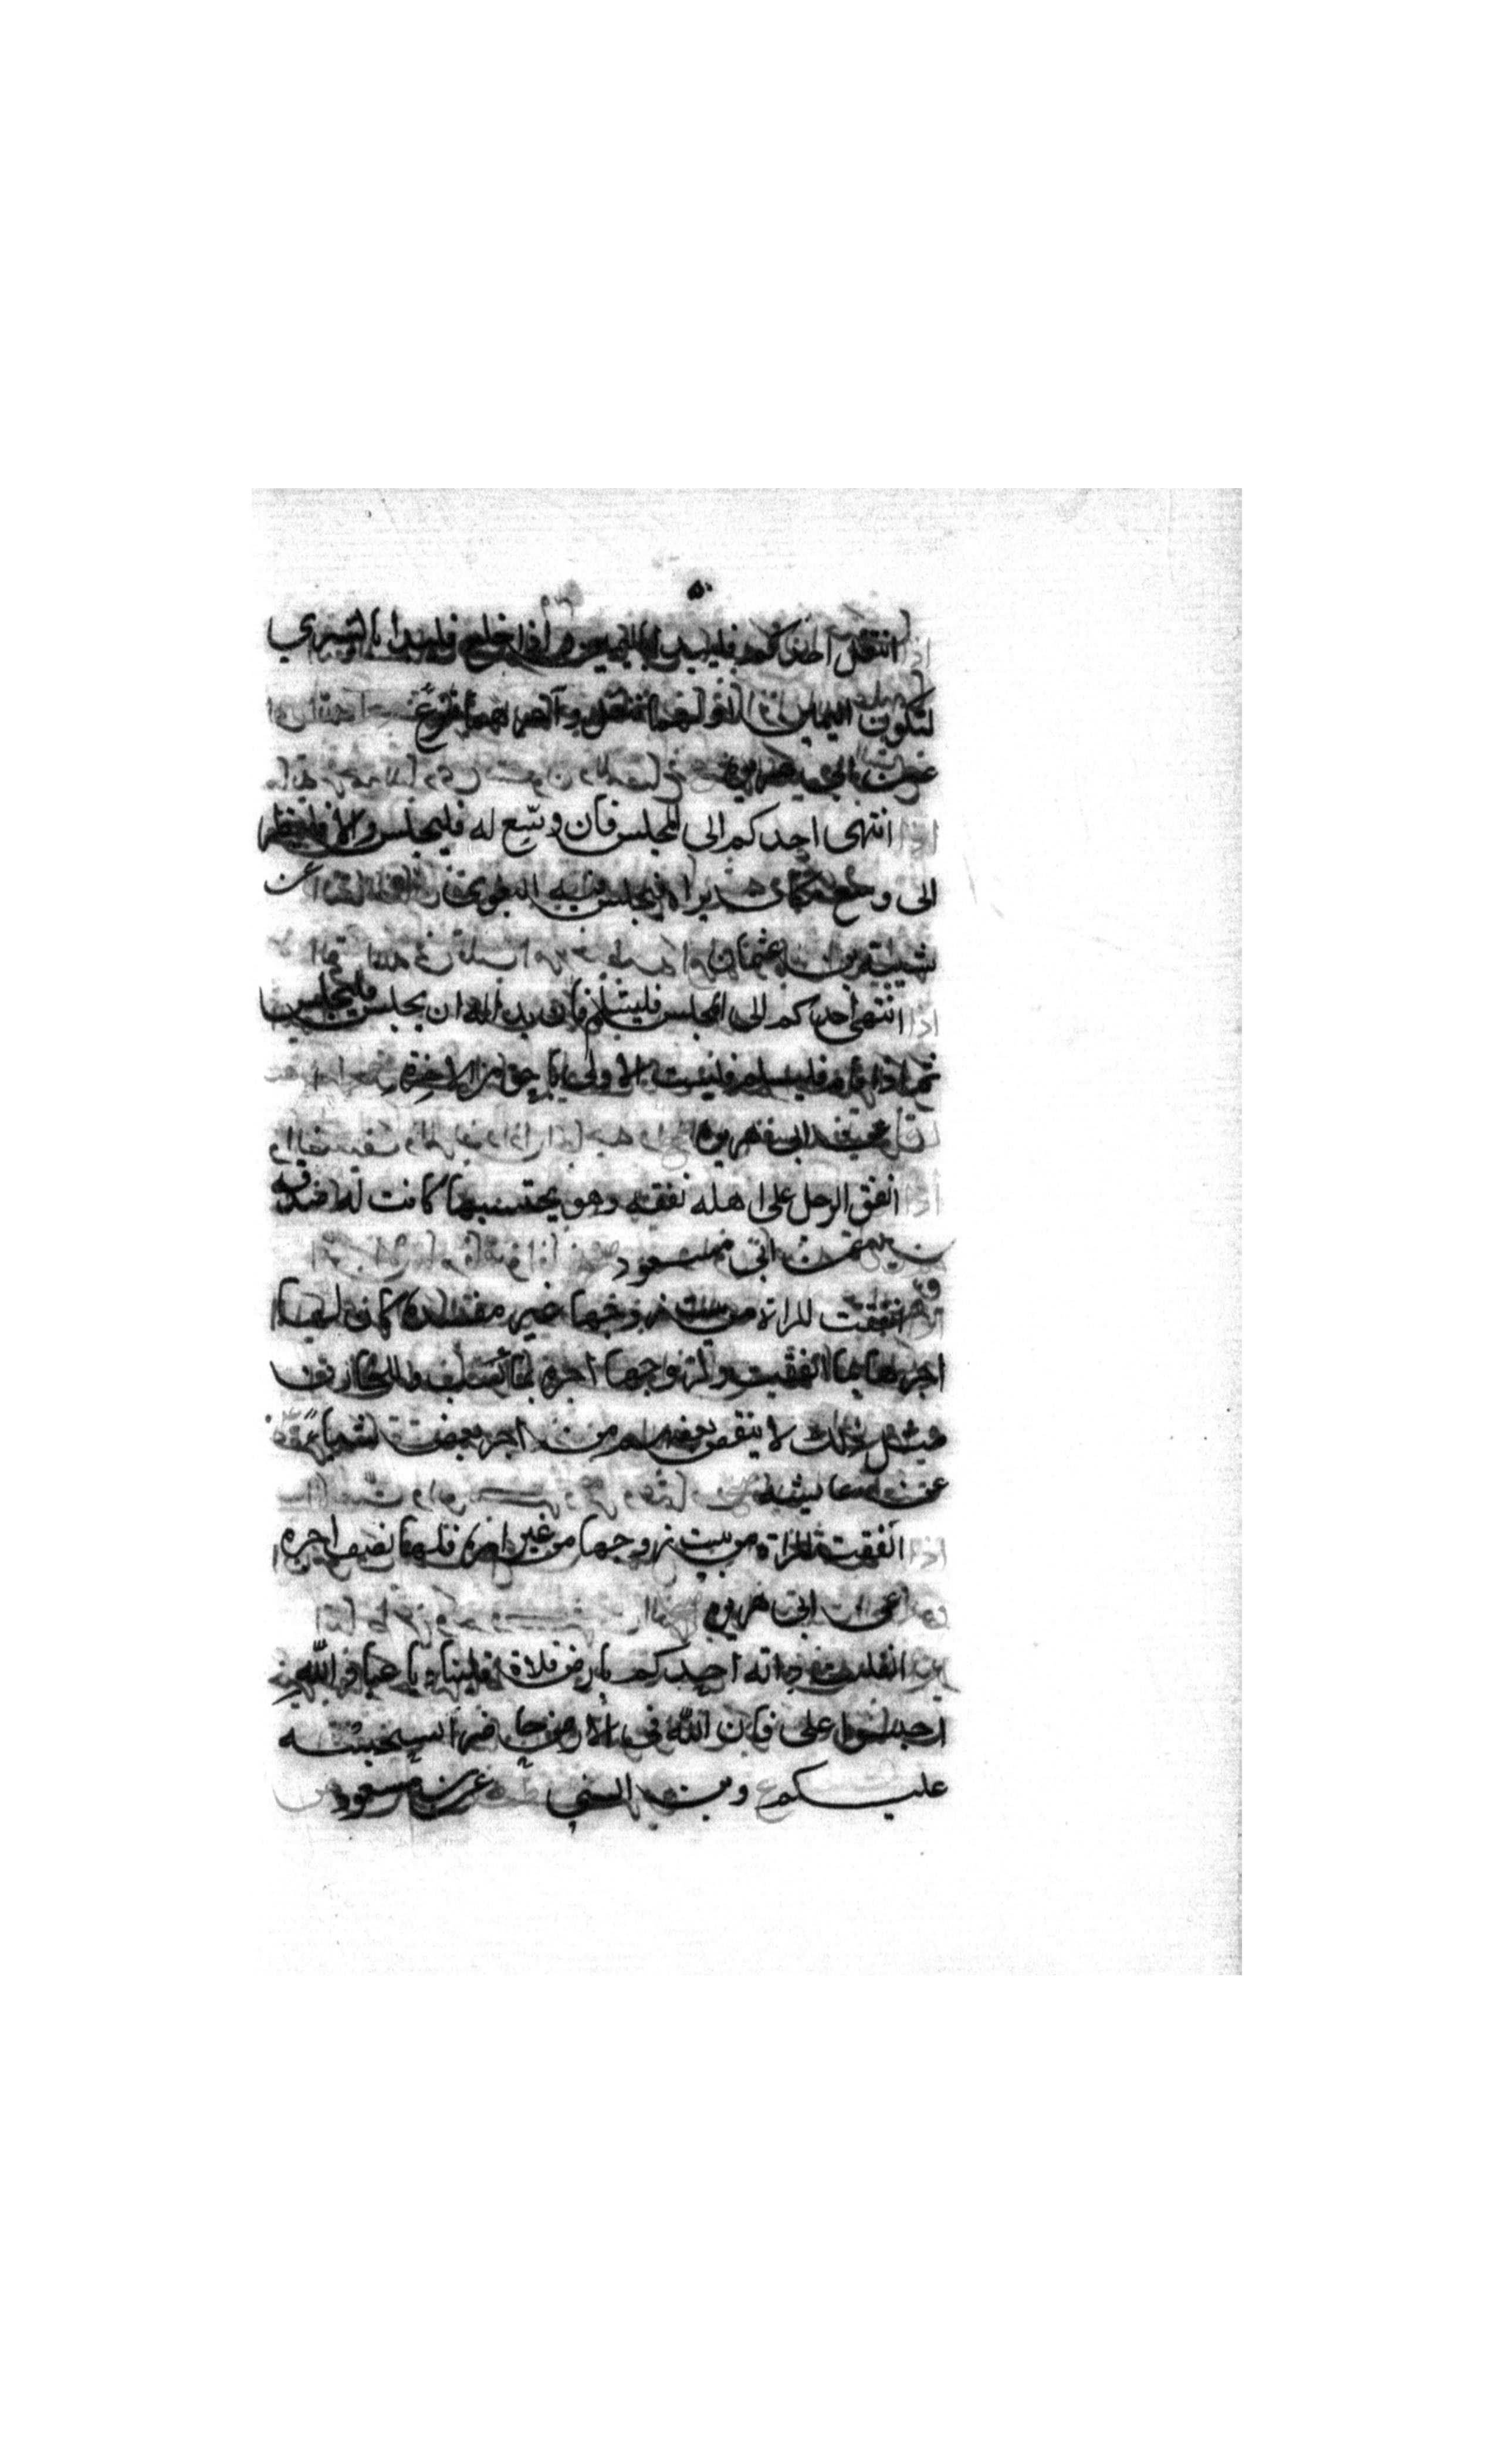 ٥٠
اذا انتعل احدكم فليبدا باليمين واذا خلع فليبدا باليسري
لتكون اليمين اولهما تنعل وآخرهما تنزع
عن ابي هريره
اذا انتهى احدكم الى المجلس فان وسّع له فليجلس والا فلينظر
الى وسع مكان يراه فليجلس فيه البغوي عن
شيبة بن عثمان
اذا انتهى احدكم الى المجلس فليسلم فان بدا له ان يجلس فليجلس
ثم اذا قام فليسلم فليست الاولى باحق من الاخرة
عن ابي هريره
اذا انفق الرجل على اهله نفقه وهو يحتسبها كانت له صدقه
عن ابي مسعود
انفقت المراة من بيت زوجها غير مفسده كان لها
اجرها بما انفقت ولزوجها اجره بما كسب وللخازن
مثل ذلك لا ينقص بعضهم من اجر بعض شياً
عن عايشه
اذا انفقت المراة من بيت زوجها من غير امره فلها نصف اجره
عن ابي هريره
انفلتت دابه احدكم بارض فلاة فليناد يا عباد الله
احبسوا على فان لله في الارض حاضرا سيحبسه
عليكم وبن السني عن بن مسعود